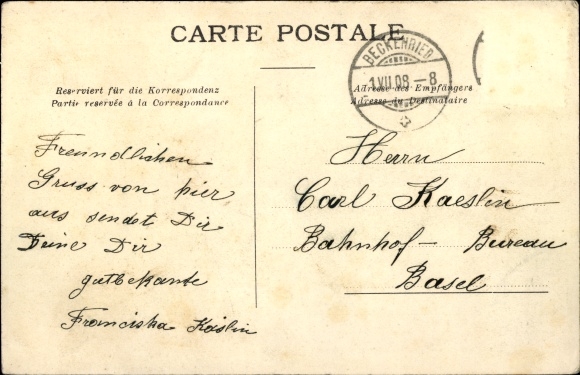 CARTE POSTALE
BECKENRIED
1.VII.08.–8
Reserviert für die Korrespondenz
Partie reservée à la Correspondance
Adresse des Empfängers
Adresse du Destinataire
Freundlichen
Gruss von hier
aus sendet Dir
Deine Dir
gutbekannte
Franciska Käslin
Herrn
Carl Kaeslin
Bahnhof – Bureau
Basel